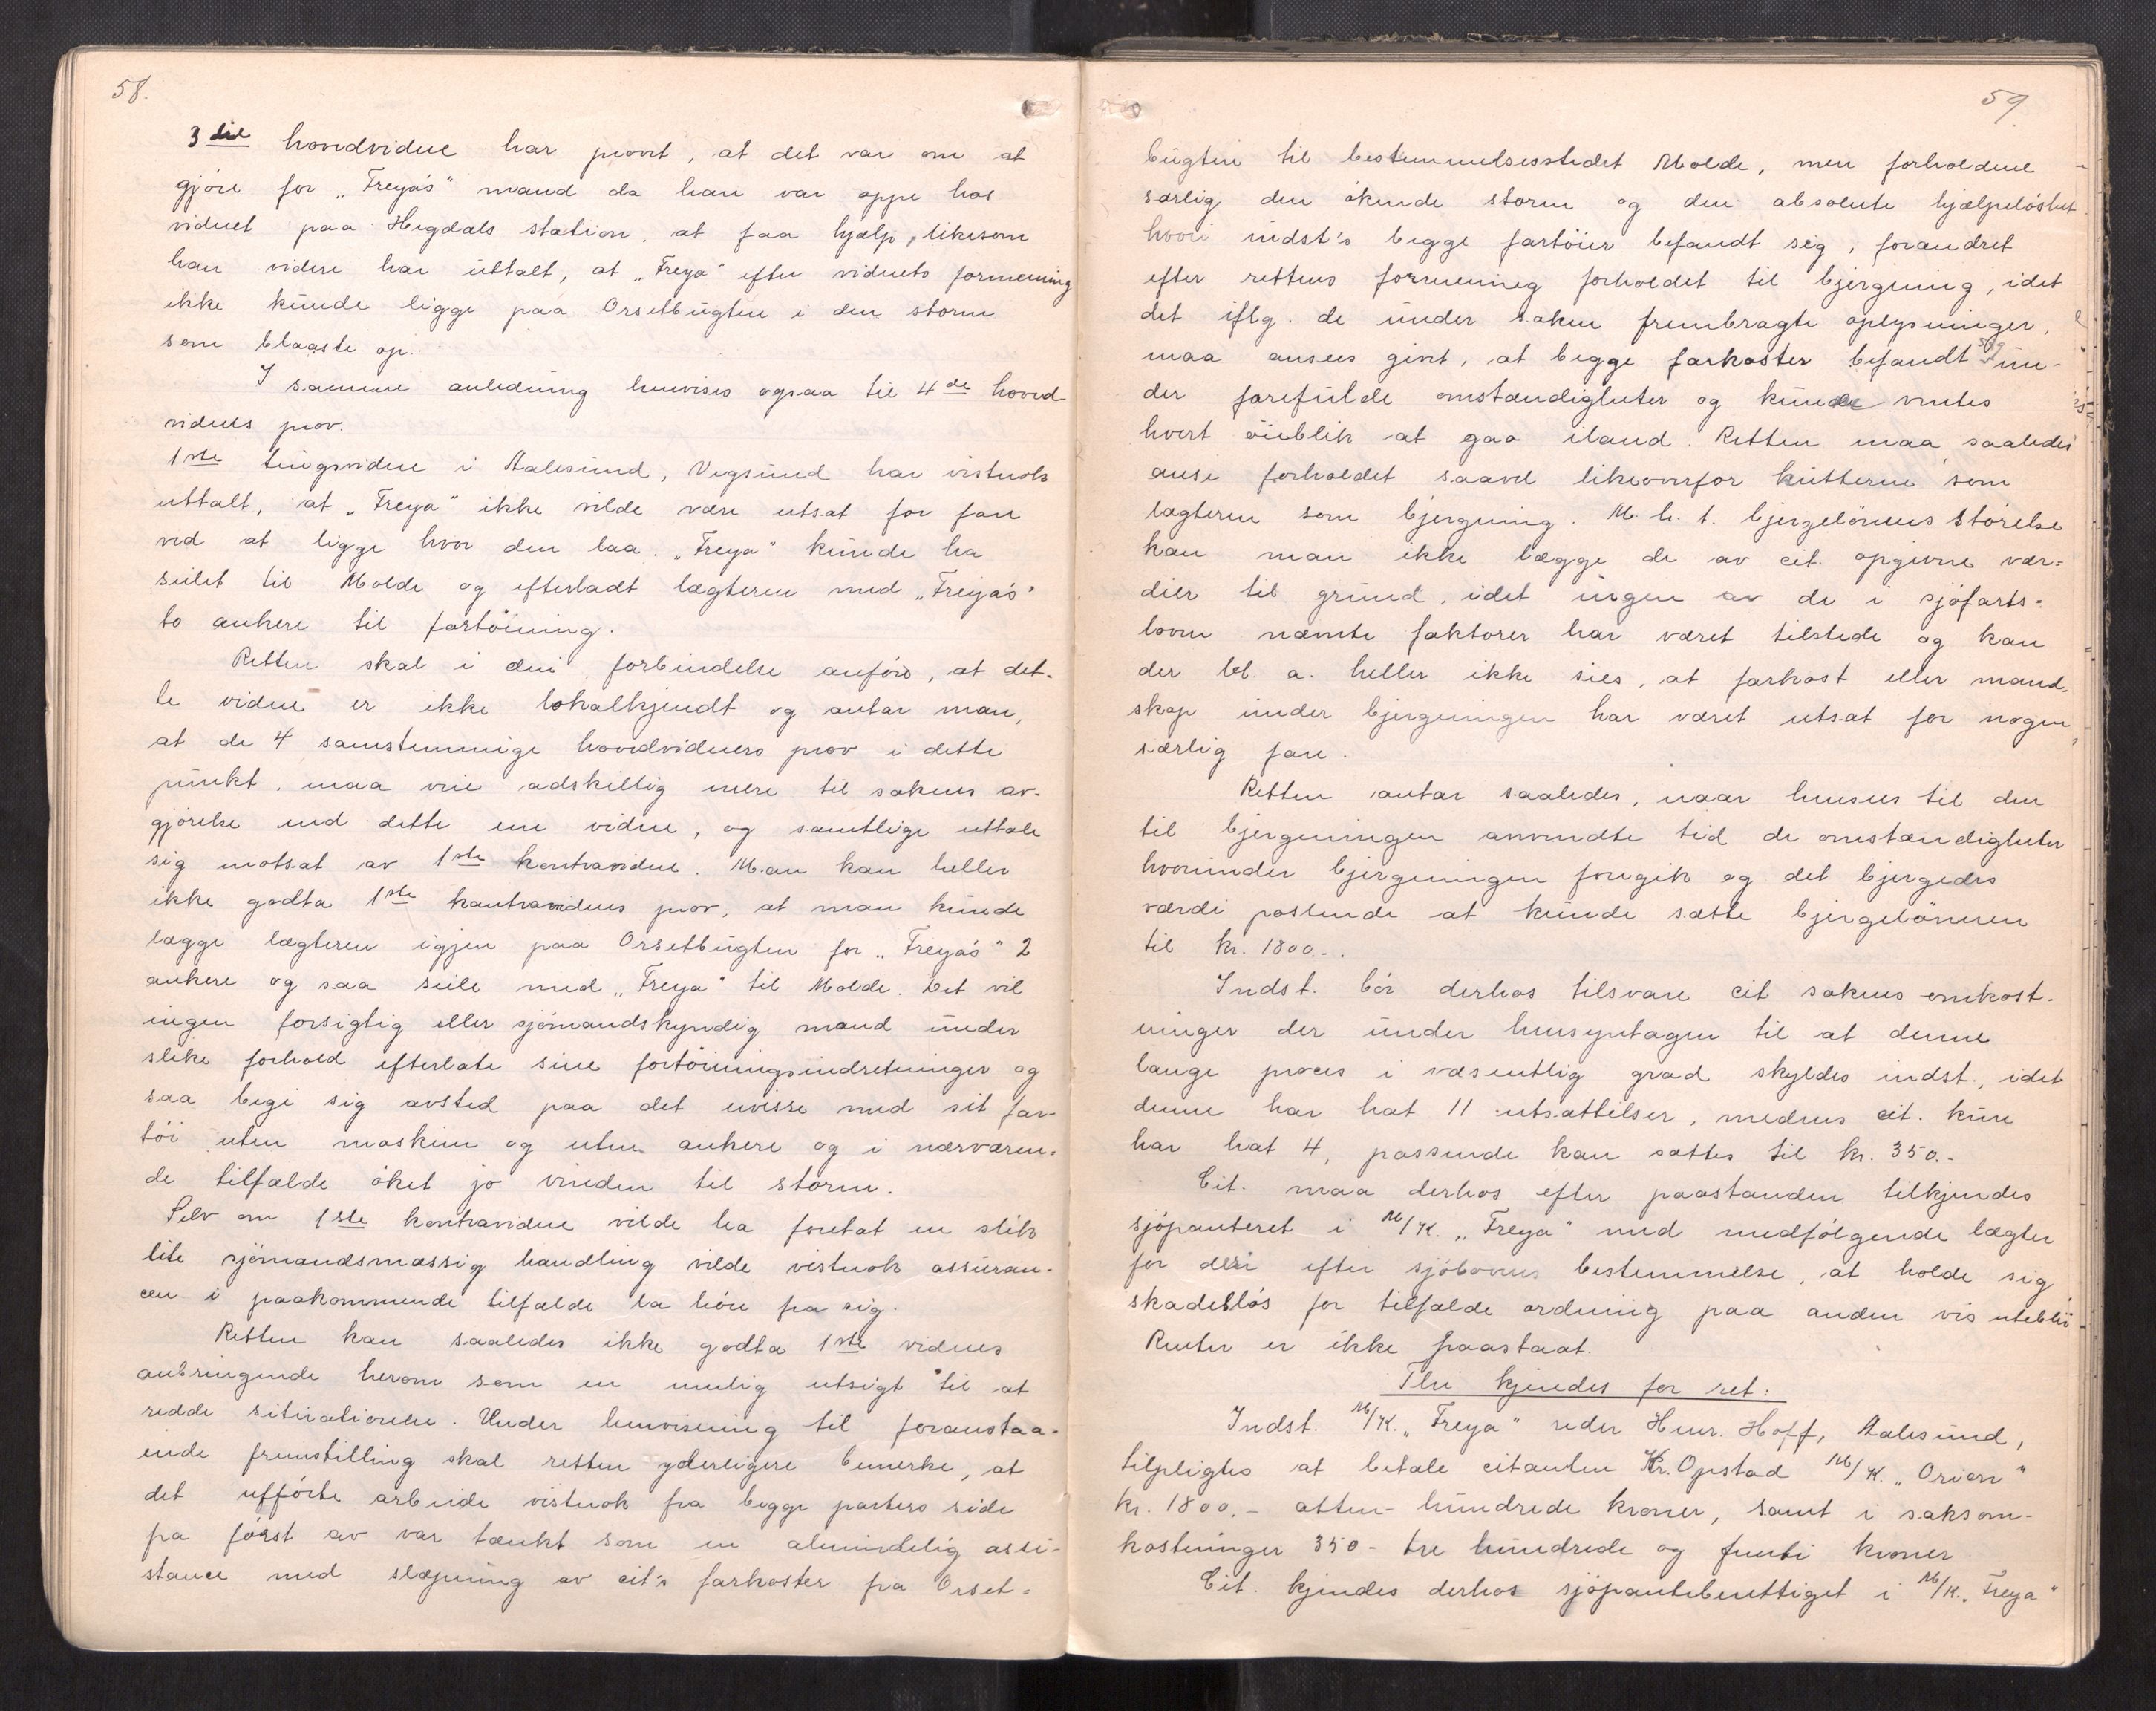 58.
3die hovedvidne har provt, at det var om at
gjöre for „Freya's" mand da han var oppe hos
vidnet paa Hegdals station, at faa hjælp, likesom
han videre har uttalt, at „Freya" efter vidnets formening
ikke kunde ligge paa Orsetbugten i den storm
som blaaste op.
I samme anledning henvises ogsaa til 4de hoved-
vidnes prov.
1ste tingsvidne i Aalesund, Vegsund har vistnok
uttalt, at „Freya" ikke vilde være utsat for fare
ved at ligge hvor den laa. „Freya" kunde ha
seilet til Molde og efterladt lægteren med „Freya's"
to ankere til fortöining.
Retten skal i den forbindelse anföre, at det-
te vidne er ikke lokalkjendt og antar man,
at de 4 samstemmige hovedvidners prov i dette
punkt, maa veie adskillig mere til sakens av-
gjörelse end dette ene vidne, og samtlige uttale
sig motsat av 1ste kontravidne. Man kan heller
ikke godta 1ste kontravidnes prov, at man kunde
lægge lægteren igjen paa Orsetbugten for „Freya's" 2
ankere og saa seile med „Freya" til Molde. Det vil
ingen forsigtig eller sjömandskyndig mand under
slike forhold efterlate sine fortöiningsindretninger og
saa begi sig avsted paa det uvisse med sit far-
töi uten maskin og uten ankere og i nærværen-
de tilfælde öket jo vinden til storm.
Selv om 1ste kontravidne vilde ha foretat en slik
lite sjömandsmæssig handling vilde vistnok assuran-
cen i paakommende tilfælde la höre fra sig.
Retten kan saaledes ikke godta 1ste vidnes
anbringende herom som en mulig utsigt til at
redde situationen. Under henvisning til foranstaa-
ende fremstilling skal retten yderligere bemerke, at
det ufförte arbeide vistnok fra begge parters side
fra först av var tænkt som en almindelig assi-
stance med slæpning av cit's farkoster fra Orset-
59.
bugten til bestemmelsesstedet Molde, men forholdene
særlig den ökende storm og den absolute hjælpelöshet
hvori indst's begge fartöier befandt sig, forandret
efter rettens formening forholdet til bjergning, idet
det iflg. de under saken frembragte oplysninger,
maa ansees givet, at begge farkoster befandt sig un-
der farefulde omstændigheter og kunde ventes
hvert öieblik at gaa iland. Retten maa saaledes
anse forholdet saavel likeoverfor kutteren som
lægteren som bjergning. M. h. t. bjergelönnens störelse
kan man ikke lægge de av cit. opgivne vær-
dier til grund, idet ingen av de i sjöfarts-
loven nævnte faktorer har været tilstede og kan
der bl. a. heller ikke sies, at farkost eller mand-
skap under bjergningen har været utsat for nogen
særlig fare.
Retten antar saaledes, naar hensees til den
til bjergningen anvendte tid de omstændigheter
hvorunder bjergningen foregik og det bjergedes
værdi passende at kunde sætte bjergelönnen
til kr. 1800.-.
Indst. bör derhos tilsvare cit sakens omkost-
ninger der under hensyntagen til at denne
lange proces i væsentlig grad skyldes indst., idet
denne har hat 11 utsættelser, medens cit. kun
har hat 4, passende kan sættes til kr. 350.-
Cit. maa derhos efter paastanden tilkjendes
sjöpanteret i M/K. „Freya" med medfölgende lægter
for deri efter sjölovens bestemmelse, at holde sig
skadeslös for tilfælde ordning paa anden vis uteblir
Renter er ikke paastaat.
Thi kjendes for ret:
Indst. M/K. „Freya" reder Henr. Hoff, Aalesund,
tilpligtes at betale citanten Kr. Opstad M/K. „Orion"
kr. 1800.- atten-hundrede kroner, samt i saksom-
kostninger 350- tre hundrede og femti kroner
Cit. kjendes derhos sjöpanteberettiget i M/K. „Freya"